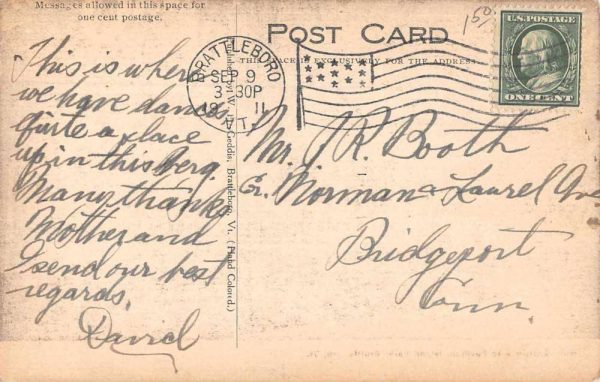 Messages allowed in this space for
one cent postage.
POST CARD
THIS BACK IS EXCLUSIVELY FOR THE ADDRESS
150/
U.S. POSTAGE
ONE CENT
BRATTLEBORO
SEP 9
3-30P
1911
VT.
This is where
we have dances,
quite a place
up in this berg.
Many thanks
Mother and
I send our best
regards.
David
Geddis, Brattleboro, Vt. (Hand Colored.)
Mr. J. R. Booth
Cr. Norman & Laurel Ave
Bridgeport
Conn.